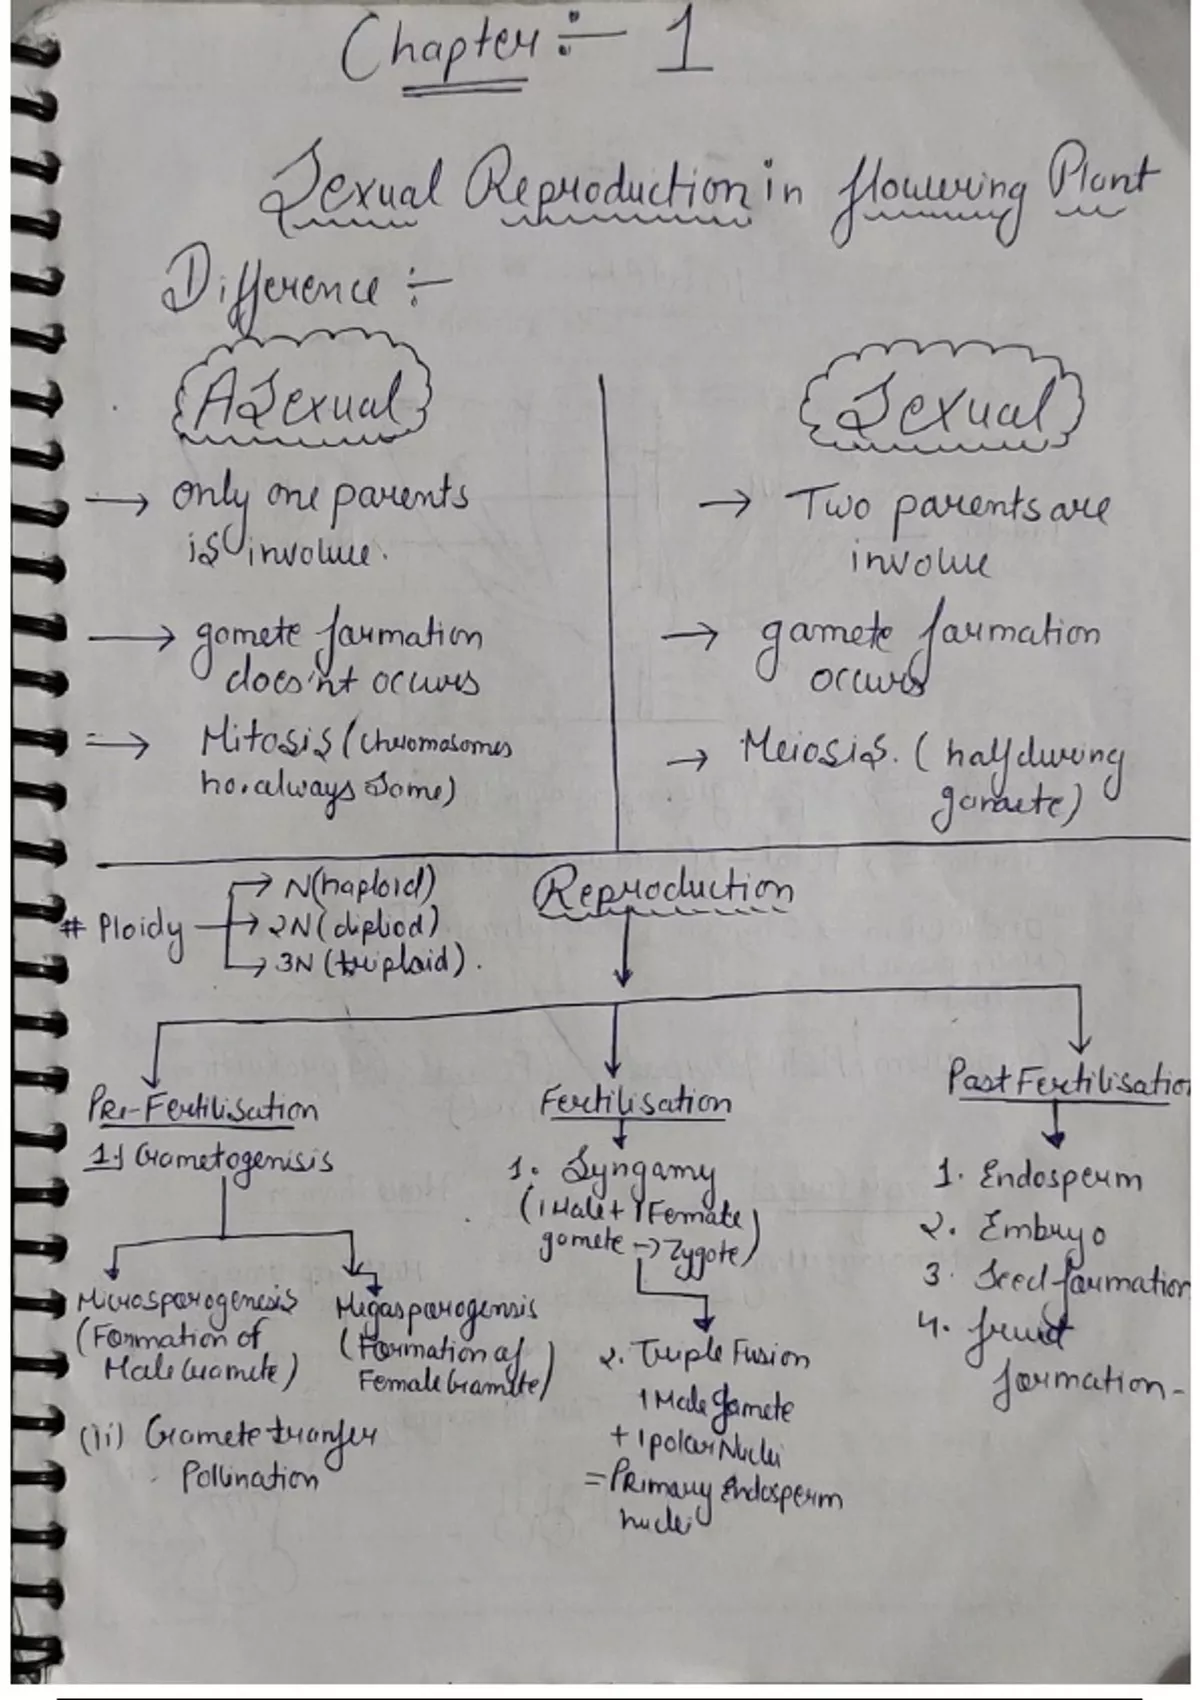 Chapter :- 1
Sexual Reproduction in flowering Plant
Difference :-
ASexual
→ only one parents
is involve.
→ gamete formation
does'nt occurs
→ Mitosis (chromosomes
no. always same)
Sexual
→ Two parents are
involve
→ gamete formation
occurs
→ Meiosis. (half during
gamete)
# Ploidy
→ N(haploid)
→ 2N (dipliod)
→ 3N (triploid).
Reproduction
Pre-Fertilisation
1.) Gametogenisis
Microsporogenesis
(Formation of
Male Gamete)
Megasporogensis
(Formation of
Female Gamete)
(ii) Gamete tranfer
Pollination
Fertilisation
1. Syngamy
(1 Male + 1 Female
gamete → Zygote)
2. Triple Fusion
1 Male gamete
+ 1 polar Nuclei
= Primary Endosperm
nuclei
Post Fertilisation
1. Endosperm
2. Embryo
3. Seed formation
4. fruit
formation-